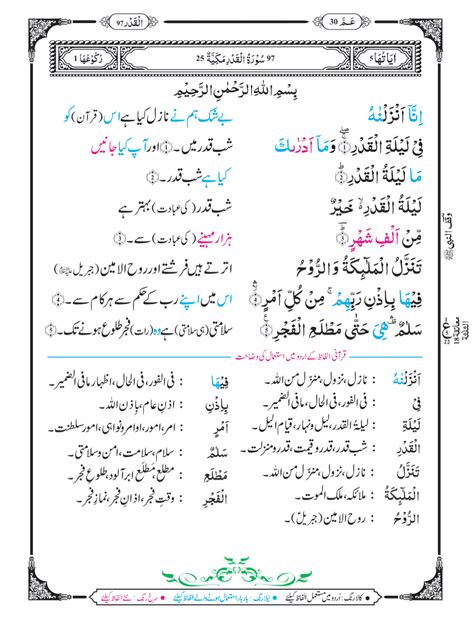 عـمّ 30
اَلْقَدْر 97
اٰیَاتُهَا 5
97 سُوْرَةُ الْقَدْرِ مَكِّيَّةٌ 25
رُكُوْعُهَا 1
بِسْمِ اللّٰهِ الرَّحْمٰنِ الرَّحِيْمِ
اِنَّاۤ اَنْزَلْنٰهُ بےشک ہم نے نازل کیا ہے اس (قرآن) کو
فِیْ لَیْلَةِ الْقَدْرِ ۚۖ﴿۱﴾ وَمَاۤ اَدْرٰىكَ شب قدر میں۔﴿۱﴾ اور آپ کیا جانیں
مَا لَیْلَةُ الْقَدْرِ ؕ﴿۲﴾ کیا ہے شب قدر۔﴿۲﴾
لَیْلَةُ الْقَدْرِ ۙ۬ خَیْرٌ شب قدر (کی عبادت) بہتر ہے
مِّنْ اَلْفِ شَهْرٍ ؕ﴿۳﴾ ہزار مہینے (کی عبادت) سے۔﴿۳﴾
تَنَزَّلُ الْمَلٰٓئِكَةُ وَالرُّوْحُ اترتے ہیں فرشتے اور روح الامین (جبریل علیہ السلام)
فِیْهَا بِاِذْنِ رَبِّهِمْ ۚ مِنْ كُلِّ اَمْرٍ ۙۛ﴿۴﴾ اس میں اپنے رب کے حکم سے ہر کام سے۔﴿۴﴾
سَلٰمٌ ۛ۟ هِیَ حَتّٰى مَطْلَعِ الْفَجْرِ ﴿۵﴾ سلامتی (ہی سلامتی) ہے وہ (رات) فجر طلوع ہونے تک۔﴿۵﴾
وقف النبی ﷺ
قرآنی الفاظ کے اردو میں استعمال کی وضاحت
اَنْزَلْنٰهُ : نازل، نزول، منزل من اللہ۔ فِیْهَا : فی الفور، فی الحال، اظہار مافی الضمیر۔
فِیْ : فی الفور، فی الحال، مافی الضمیر۔ بِاِذْنِ : اذنِ عام، باذن اللہ۔
لَیْلَةِ : لیلۃ القدر، لیل و نہار، قیام اللیل۔ اَمْرٍ : امر، امور، اوامر و نواہی، امورِ سلطنت۔
الْقَدْرِ : قدر، شب قدر، قدر و قیمت، قدر و منزلت۔ سَلٰمٌ : سلام، سلامت، امن و سلامتی۔
تَنَزَّلُ : نازل، نزول، منزل من اللہ۔ مَطْلَعِ : مطلع، مطلع ابر آلود، طلوع فجر۔
الْمَلٰٓئِكَةُ : ملائکہ، ملک الموت۔ الْفَجْرِ : وقتِ فجر، اذانِ فجر، نمازِ فجر۔
الرُّوْحُ : روح الامین (جبریل)۔
کالا رنگ : اردو میں مستعمل الفاظ کیلئے نیلا رنگ : بار بار استعمال ہونے والے الفاظ کیلئے سرخ رنگ : نئے الفاظ کیلئے